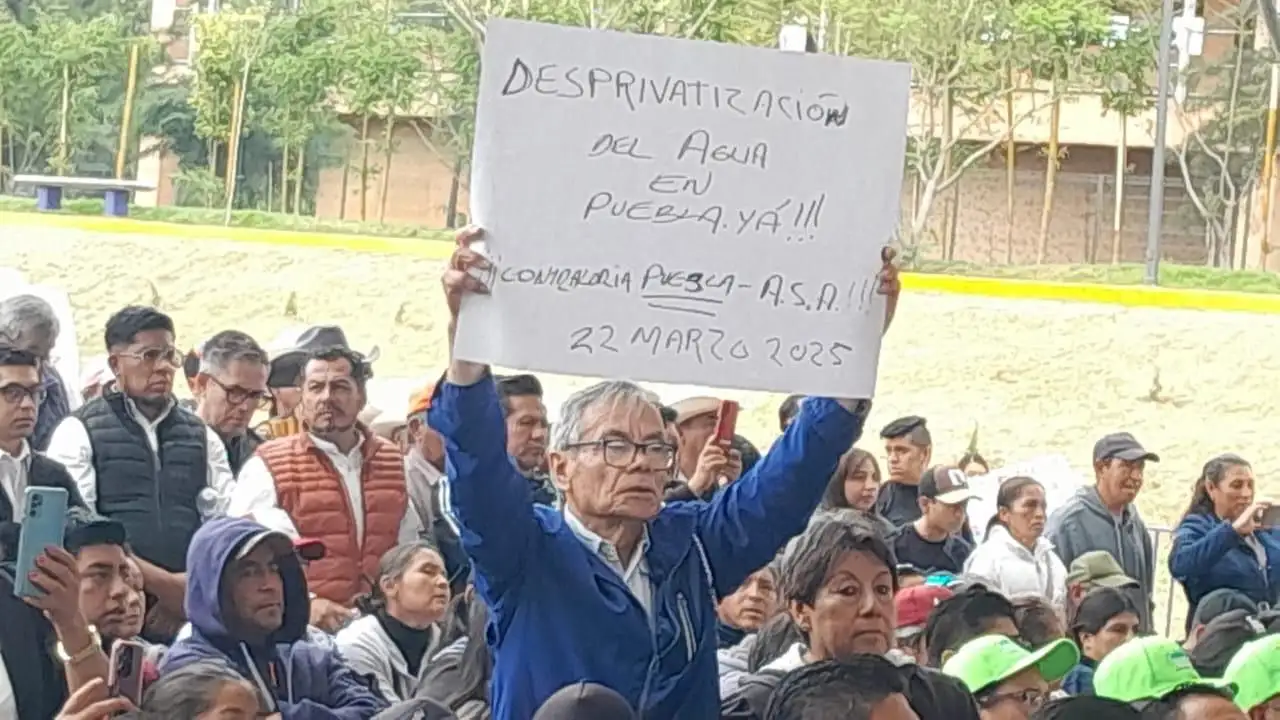 DESPRIVATIZACIÓN
DEL AGUA
EN
PUEBLA. YÁ!!!
¡¡CONTRALORIA PUEBLA - A.S.A.!!!
22 MARZO 2025